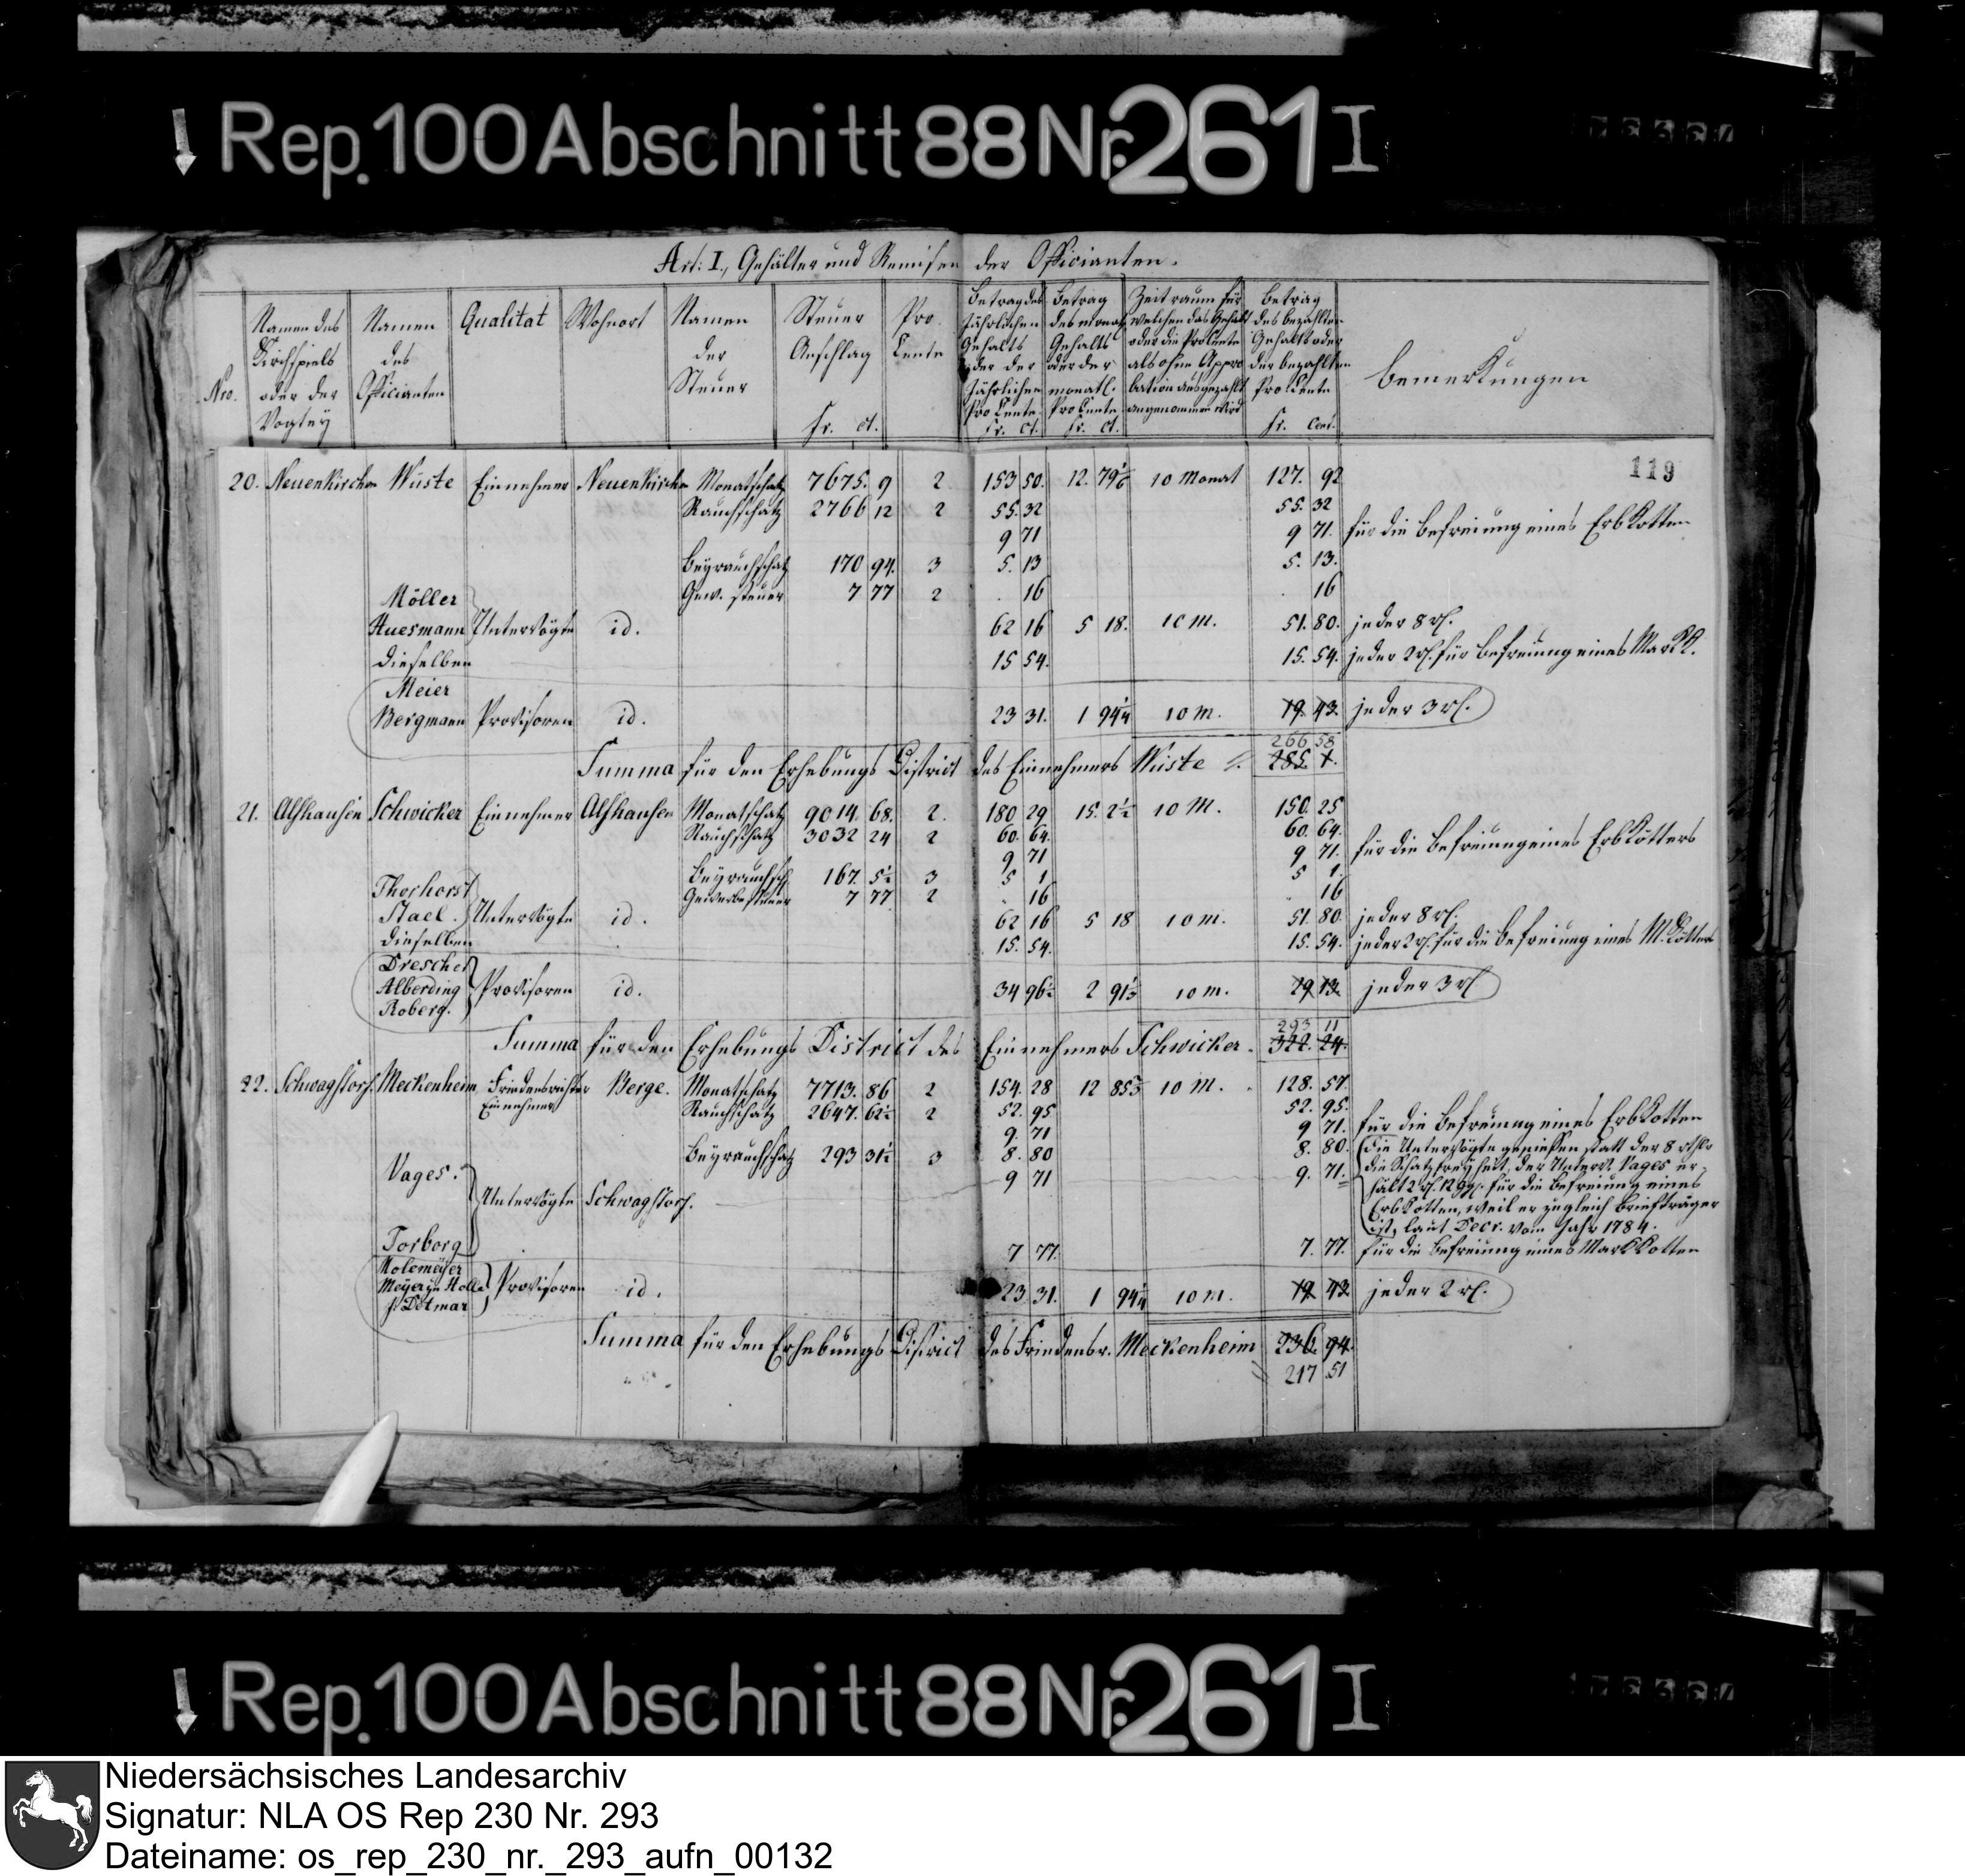 Rep. 100 Abschnitt 88 Nr. 261 I
Art: I., Gehälter und Remisen der Officianten.
Nro. | Namen des Kirchspiels oder der Vogtey | Namen des Officianten | Qualitat | Wohnort | Namen der Steuer | Steuer Anschlag fr. ct. | Pro Cente | Betrag des Jährlichen Gehalts oder der Jährlichen Pro Cente fr. ct. | Betrag des monatl. Gehalts oder der monatl. Pro Cente fr. ct. | Zeitraum für welchen das Gehalt oder die Pro Cente als ohne Appro bation ausgezahlt angenommen wird | Betrag des bezahlten Gehalts oder der bezahlten Pro Cente fr. Cent. | Bemerkungen
119
20. Neuenkirchen Wüste Einnehmer Neuenkirchen Monatschatz 7675. 9 2 153 50. 12. 79 1/6 10 Monat 127. 92
Rauchschatz 2766 12 2 55. 32 55. 32
9 71 9 71. für die Befreiung eines Erbkotten
Beyrauchschatz 170 94. 3 5. 13 5. 13.
Gew. steuer 7 77 2 . 16 . 16
Möller
Huesmann Untervögte id. 62 16 5 18. 10 M. 51. 80. jeder 8 rl.
dieselben 15 54. 15. 54. jeder 2 rl. für Befreiung eines MarkK.
Meier
Bergmann Provisoren id. 23 31. 1 94 1/4 10 m. 19. 43. jeder 3 rl.
266 58
Summa für den Erhebungs District des Einnehmers Wüste 285. 1.
21. Alfhausen Schwicker Einnehmer Alfhausen Monatschatz 9014. 68. 2. 180 29 15. 2 1/2 10 M. 150. 25
Rauchschatz 3032 24 2 60. 64. 60. 64.
9 71 9 71. für die Befreiung eines Erbkötters
Beyrauchsch. 167. 5 1/2 3 5 1 5 1.
Gewerbesteuer 7 77 2 . 16 . 16
Thorhorst
Stael. Untervögte id. 62 16 5 18 10 m. 51. 80. jeder 8 rl.
dieselben 15. 54. 15. 54. jeder 2 rl. für die Befreiung eines M. Kötters
Drescher
Alberding Provisoren id. 34 96 1/2 2 91 1/3 10 m. 29 13. jeder 3 rl
Roberg.
293 11
Summa für den Erhebungs District des Einnehmers Schwicker. 322. 24.
22. Schwagstorf. Meckenheim Friedensrichter Berge. Monatschatz 7713. 86 2 154. 28 12 85 2/3 10 M. 128. 57.
Einnehmer Rauchschatz 2647. 62 1/2 2 52. 95 52. 95.
9. 71 9 71. für die Befreiung eines Erbkotten
Beyrauchschatz 293 31 1/2 3 8. 80 8. 80. Die Untervögte geniessen statt der 8 rthlr
Vages. 9 71 9. 71. die Schatzfreyheit, der Unterv. Vages er-
hält 2 rl. 12 gg. für die Befreiung eines
Untervögte Schwagstorf. Erbkotten, weil er zugleich Briefträger
ist, laut Decr. vom Jahr 1784.
Torborg 7 77. 7. 77. für die Befreiung eines Markkotten
Kolcmeyer
Meyer zu Holle Provisoren id. 23 31. 1 94 1/4 10 m. 19 43. jeder 2 rl.
Detmar
Summa für den Erhebungs District des Friedensr. Meckenheim 236. 94.
217 51
Rep. 100 Abschnitt 88 Nr. 261 I
Niedersächsisches Landesarchiv
Signatur: NLA OS Rep 230 Nr. 293
Dateiname: os_rep_230_nr._293_aufn_00132